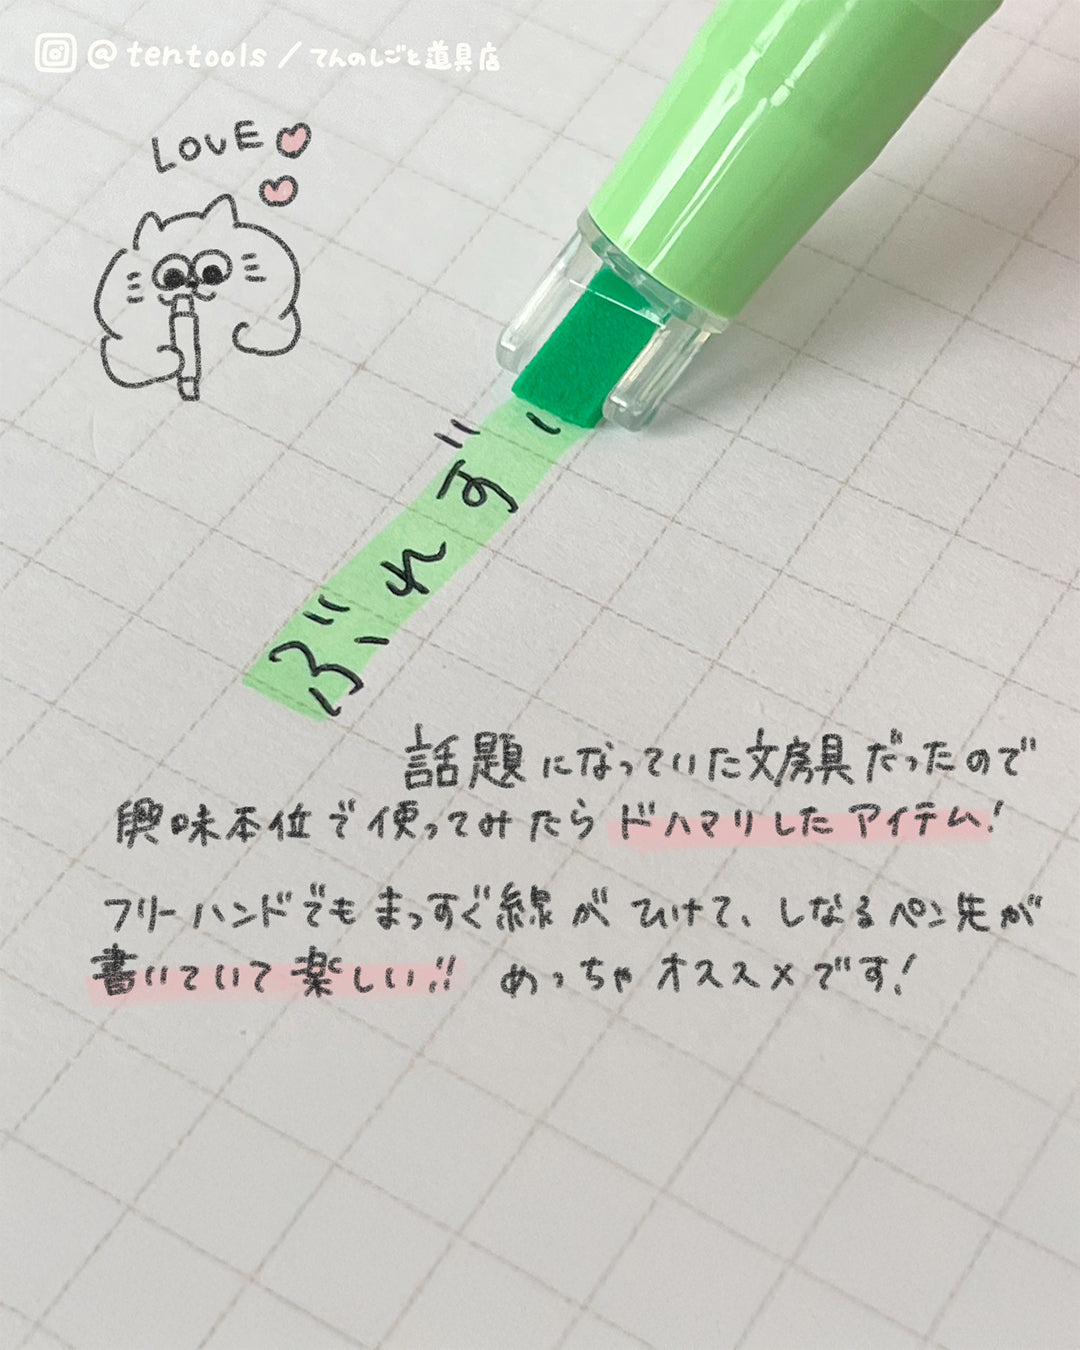 @tentools/てんのしごと道具店
LOVE
ぶれずに
話題になっていた文房具だったので
興味本位で使ってみたらドハマりしたアイテム!
フリーハンドでもまっすぐ線がひけて、しなるペン先が
書いていて楽しい!! めっちゃオススメです!